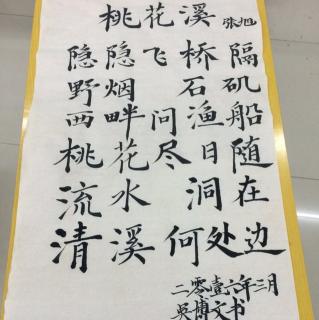 桃花溪 张旭
隐隐飞桥隔
野烟石矶
西畔问渔船
桃花尽日随
流水洞在
清溪何处边
二零壹六年三月
吳博文书